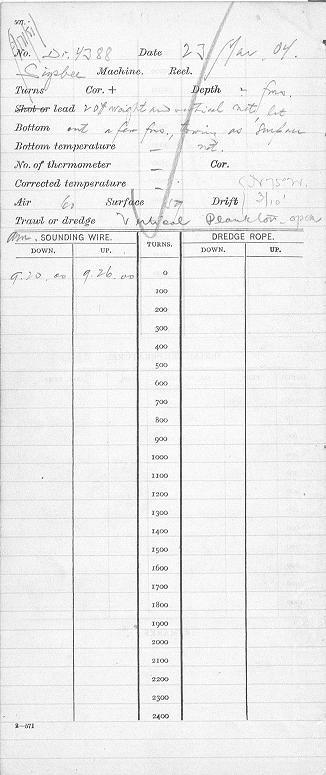 507.
No. Dr. 4388 Date 23 Mar, 04.
Sigsbee Machine. Reel.
Turns Cor. + Depth " fms.
Shot or lead 20# weight and vertical net let
Bottom out a few fms., towing as surface
Bottom temperature — net.
No. of thermometer — Cor.
Corrected temperature — (N 75 W.
Air 60 Surface Drift 3/10'
Trawl or dredge Vertical Plankton - open
am, SOUNDING WIRE. TURNS. DREDGE ROPE.
DOWN. UP. DOWN. UP.
9.20.00 9.26.00 0
100
200
300
400
500
600
700
800
900
1000
1100
1200
1300
1400
1500
1600
1700
1800
1900
2000
2100
2200
2300
2400
2—571